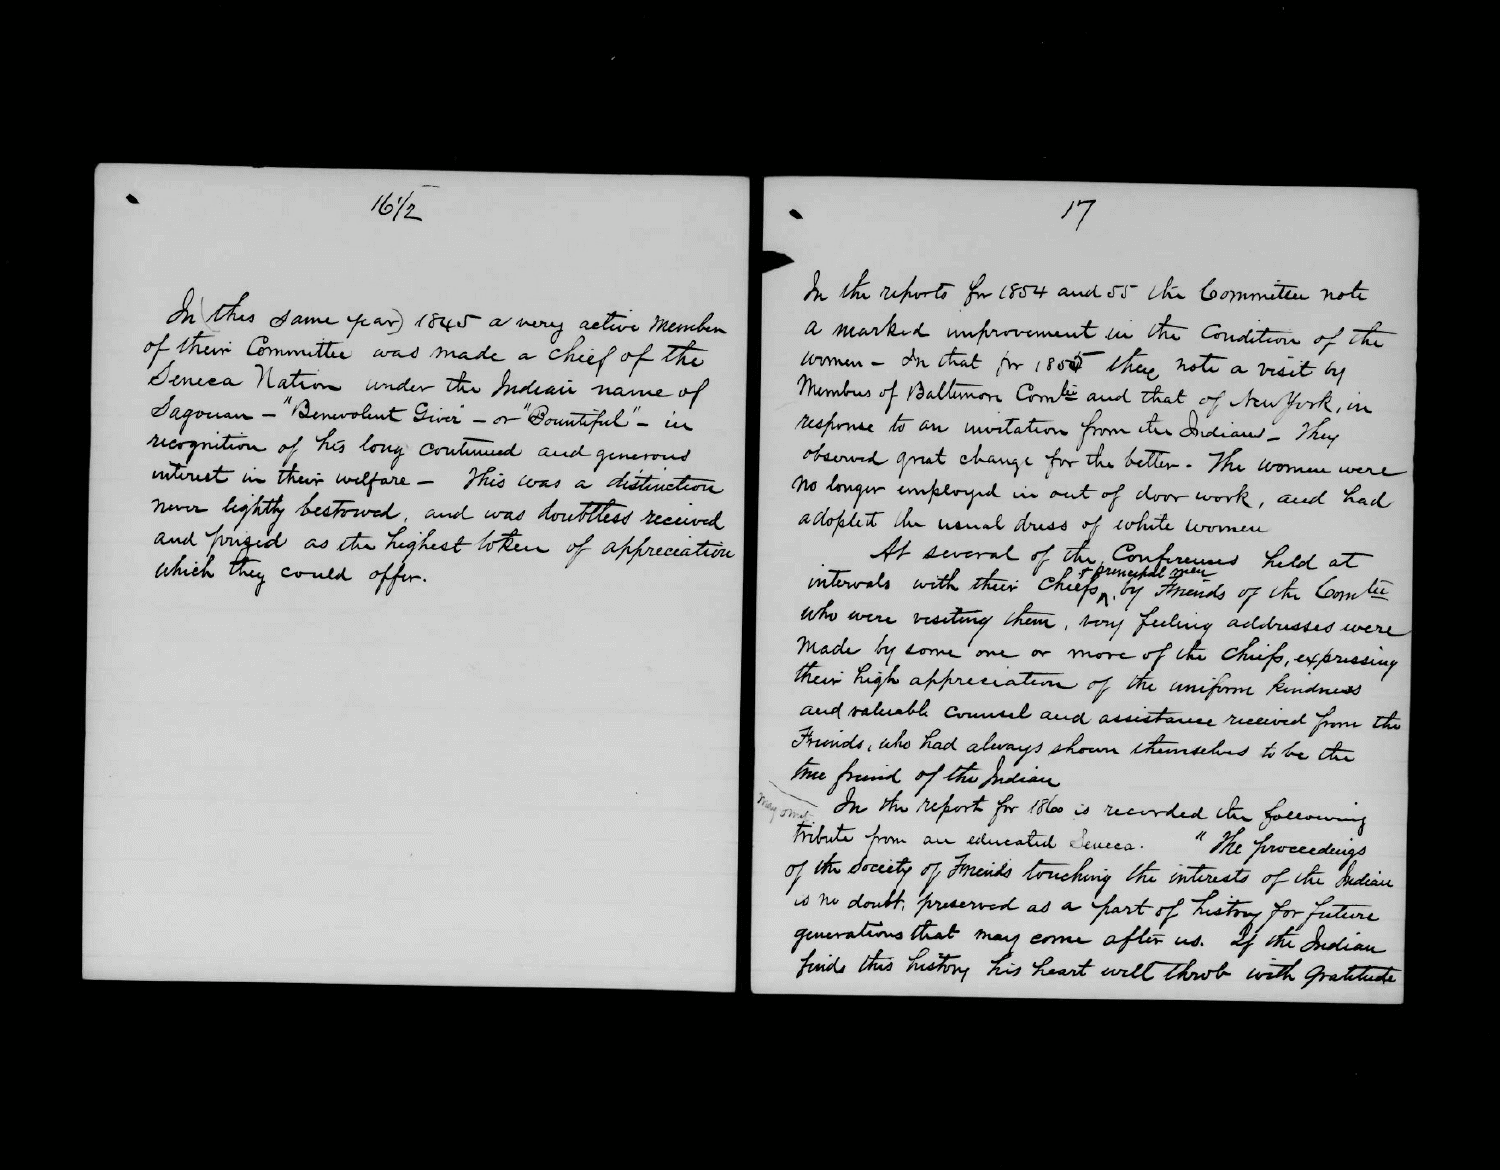 16 1/2
In (this same year) 1845 a very active member
of their Committee was made a chief of the
Seneca Nation under the Indian name of
Sagouan - "Benevolent Giver" - or "Bountiful" - in
recognition of his long continued and generous
interest in their welfare - This was a distinction
never lightly bestowed, and was doubtless received
and prized as the highest token of appreciation
which they could offer.
17
In the reports for 1854 and 55 the Committee note
a marked improvement in the Condition of the
women - In that for 1855 they note a visit by
Members of Baltimore Comtee and that of New York, in
response to an invitation from the Indians - They
observed great change for the better - The women were
no longer employed in out of door work, and had
adopted the usual dress of white women
At several of the Conferences held at
+ principal men
intervals with their Chiefs ^ by Friends of the Comtee
who were visiting them, very feeling addresses were
made by some one or more of the Chiefs, expressing
their high appreciation of the uniform kindness
and valuable counsel and assistance received from the
Friends, who had always shown themselves to be the
true friend of the Indian
may omit
In the report for 1860 is recorded the following
tribute from an educated Seneca. "The proceedings
of the society of Friends touching the interests of the Indian
is no doubt, preserved as a part of history for future
generations that may come after us. If the Indian
finds this history his heart will throb with gratitude